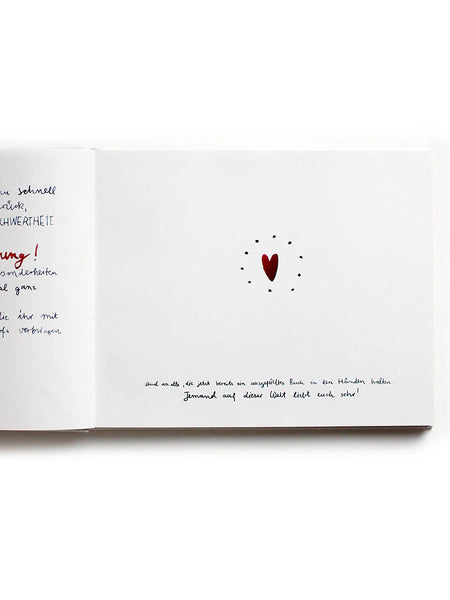 schnell
CHWERTHEIT
ung!
sonderheiten
al ganz
die ihr mit
ofa verbringen
Und an alle, die jetzt bereits ein ausgefülltes Buch in den Händen halten.
Jemand auf dieser Welt liebt euch sehr!